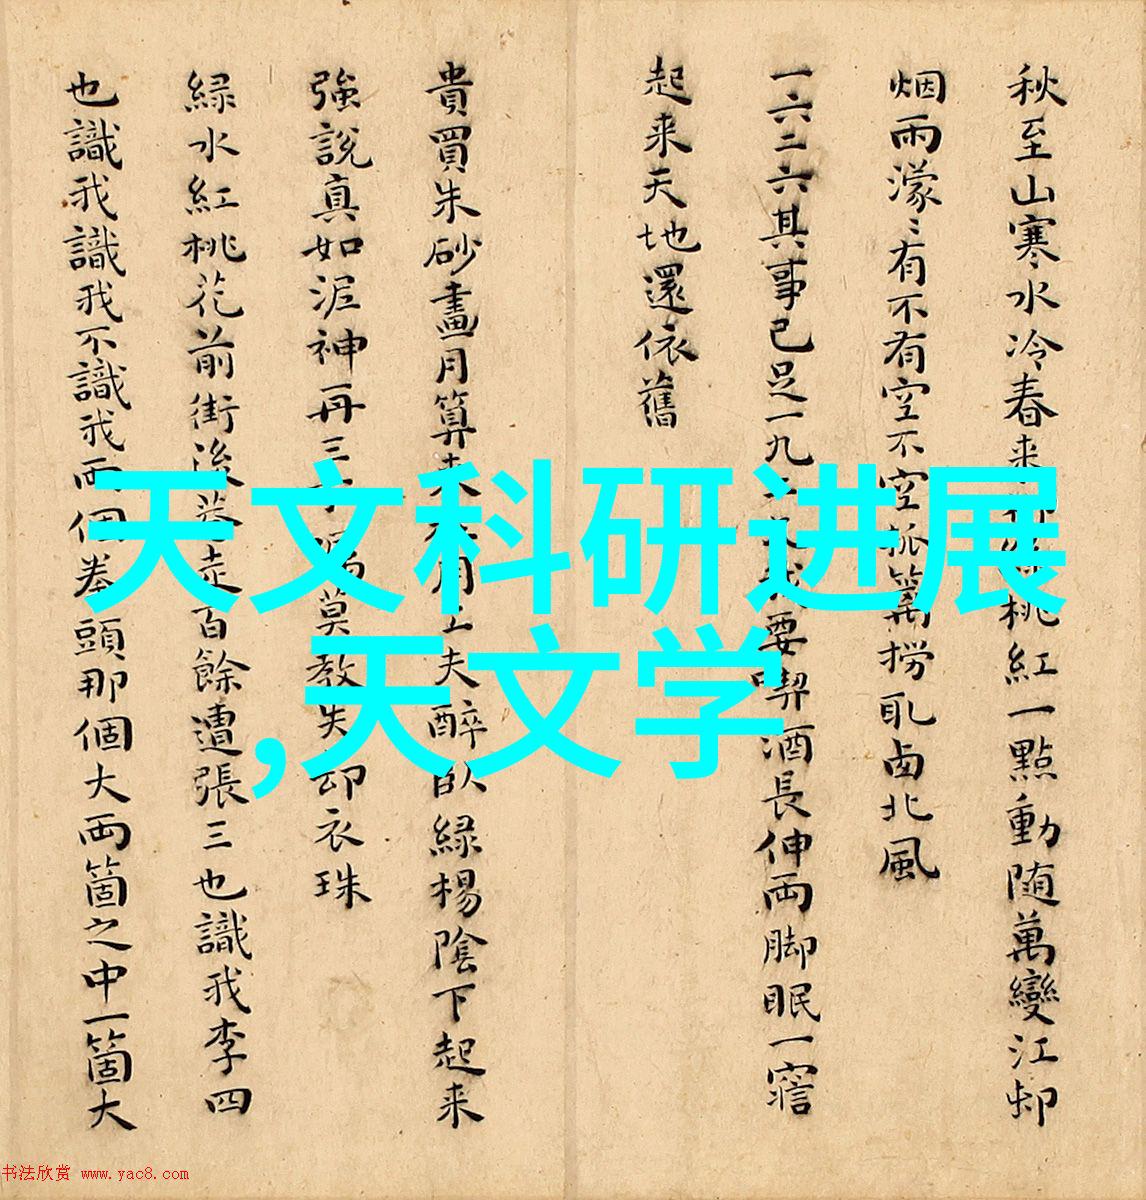 秋至山寒水冷春来
桃紅一點動随萬變江邨
烟雨濛〻有不有空不空
笊篱撈取西北風
一六二六其事已足一九
要喫酒長伸兩脚眠一寤
起来天地還依舊
貴買朱砂畫月算来
工夫醉卧緑楊陰下起来
強說真如泥神再三
莫教失却衣珠
緑水紅桃花前街後巷走百餘遭張三也識我李四
也識我識我不識我兩個拳頭那個大兩箇之中一箇大
天文科研进展
,天文学
书法欣赏 www.yac8.com